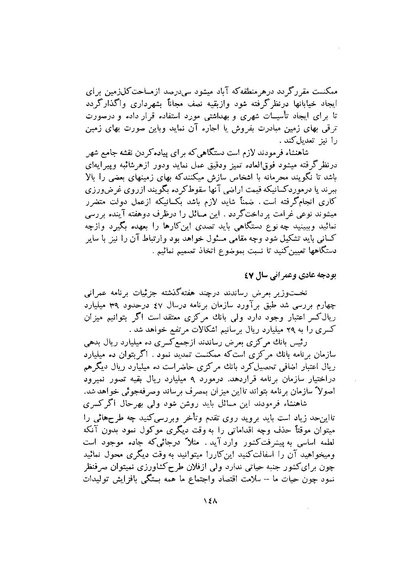 ممکنست مقررگردد درهرمنطقه‌که آباد میشود سی‌درصد ازمساحت‌کل‌زمین برای
ایجاد خیابانها درنظرگرفته شود وازبقیه نصف مجاناً بشهرداری واگذارگردد
تا برای ایجاد تأسیسات شهری و بهداشتی مورد استفاده قرار داده و درصورت
ترقی بهای زمین مبادرت بفروش یا اجاره آن نماید وباین صورت بهای زمین
را نیز تعدیل‌کند .
شاهنشاه فرمودند لازم است دستگاهی‌که برای پیاده‌کردن نقشه جامع شهر
درنظرگرفته میشود فوق‌العاده تمیز ودقیق عمل نماید ودور ازهرشائبه وپیرایه‌ای
باشد تا نگویند محرمانه با اشخاص سازش میکنندکه بهای زمینهای بعضی را بالا
ببرند یا درموردکسانیکه قیمت اراضی آنها سقوط‌کرده بگویند ازروی غرض‌ورزی
کاری انجام‌گرفته است . ضمناً شاید لازم باشد بکسانیکه ازعمل دولت متضرر
میشوند نوعی غرامت پرداخت‌گردد . این مسائل را درظرف دوهفته آینده بررسی
نمائید وببینید چه نوع دستگاهی باید تصدی این‌کارها را بعهده بگیرد وازچه
کسانی باید تشکیل شود وچه مقامی مسئول خواهد بود وارتباط آن را نیز با سایر
دستگاهها تعیین‌کنید تا نسبت بموضوع اتخاذ تصمیم نمائیم .
بودجه عادی وعمرانی سال ۴۷
نخست‌وزیر بعرض رساندند درچند هفته‌گذشته جزئیات برنامه عمرانی
چهارم بررسی شد طبق برآورد سازمان برنامه درسال ۴۷ درحدود ۳۹ میلیارد
ریال‌کسر اعتبار وجود دارد ولی بانك مرکزی معتقد است اگر بتوانیم میزان
کسری را به ۲۹ میلیارد ریال برسانیم اشکالات مرتفع خواهد شد .
رئیس بانك مرکزی بعرض رساندند ازجمع‌کسری ده میلیارد ریال بدهی
سازمان برنامه ببانك مرکزی است‌که ممکنست تمدید نمود . اگربتوان ده میلیارد
ریال اعتبار اضافی تحصیل‌کرد بانك مرکزی حاضراست ده میلیارد ریال دیگرهم
دراختیار سازمان برنامه قراردهد. درمورد ۹ میلیارد ریال بقیه تصور نمیرود
اصولاً سازمان برنامه بتواند تااین میزان بمصرف برساند وصرفه‌جوئی خواهد شد.
شاهنشاه فرمودند این مسائل باید روشن شود ولی بهرحال اگرکسری
تااین‌حد زیاد است باید بروید روی تقدم وتأخر وبررسی‌کنید چه طرح‌هائی را
میتوان موقتاً حذف وچه اقداماتی را به وقت دیگری موکول نمود بدون آنکه
لطمه اساسی به پیشرفت‌کشور وارد آید . مثلاً درجائی‌که جاده موجود است
ومیخواهید آن را اسفالت‌کنید این‌کاررا میتوانید به وقت دیگری محول نمائید
چون برای‌کشور جنبه حیاتی ندارد ولی ازفلان طرح‌کشاورزی نمیتوان صرفنظر
نمود چون حیات ما -- سلامت اقتصاد واجتماع ما همه بستگی بافزایش تولیدات
۱۴۸